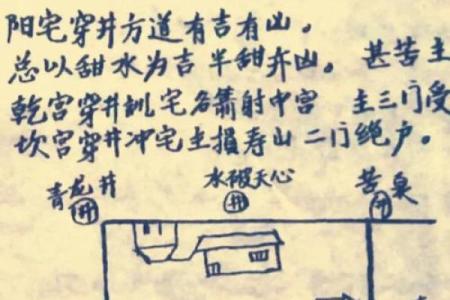 阳宅穿井方道有吉有凶。
总以甜水为吉半甜弃凶。甚苦主
乾宫穿井訓宅名箭射中宫 主三门受
坎宫穿井冲宅主損寿凶二门绝户。
青龙井 水破天心 苦泉
井 井 井